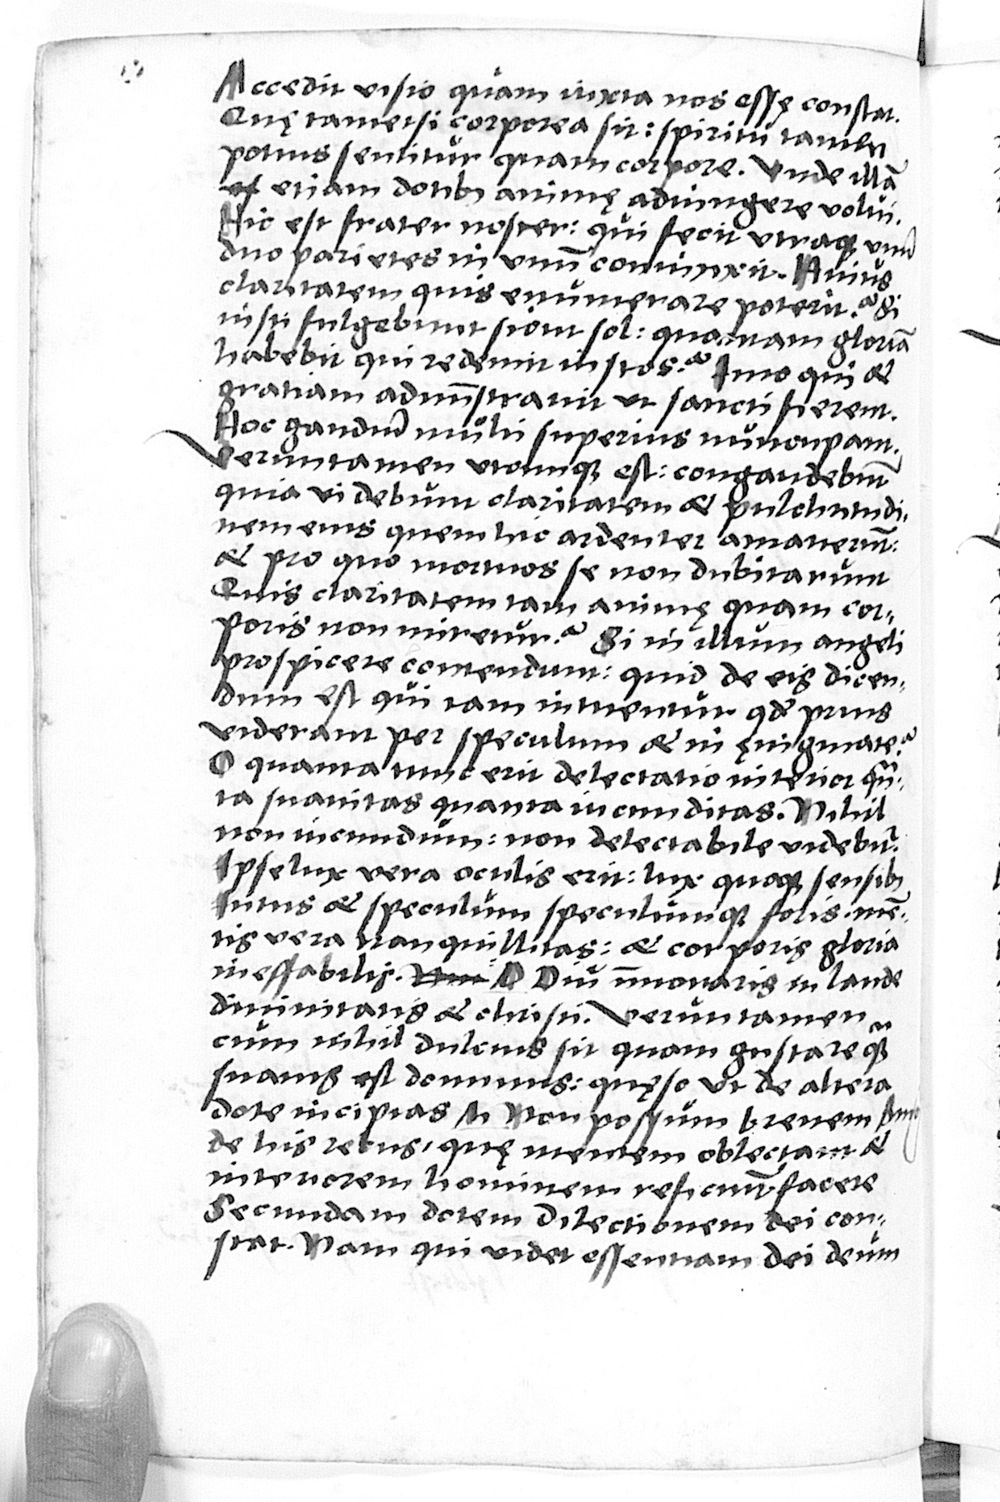 Accedit visio quam iuxta nos esse constat.
Quę tametsi corporea sit: spiritu tamen
potius sentitur quam corpore. Vnde illã
etiam dotibꝫ animę adiungere volui.
Hic est frater noster: qui fecit vtraqꝫ vnũ
duo parietes in vnũ coniunxit. Huius
claritatem quis enumerare poterit? Si
iusti fulgebunt sicut sol: quantam gloriã
habebit qui redemit iustos? Imo qui &
gratiam admĩstrauit ut sancti fierent.
Hoc gaudiũ multi superius nuncupant.
Veruntamen utcunqꝫ est: congaudebũt
quia videbunt claritatem & pulchritudi,
nem eius quem hic ardenter amauerũt:
& pro quo mortuos se non dubitarunt
Quis claritatem tam animę quam cor,
poris non miretur? Si in illum angeli
prospicere contendunt: quid de eis dicen,
dum est qui iam intuentur qđ prius
viderant per speculum & in ęnigmate?
O quanta tunc erit delectatio interior quã,
ta suauitas quanta iucunditas. Nihil
non iucundum: non delectabile videbit̃.
Ipse lux vera oculis erit: lux quoqꝫ sensibꝫ
Intus & speculum speculumqꝫ foris. mẽ,
tis vera tranquillitas: & corporis gloria
ineffabilis. D Diu ĩmoraris in laude
diuinitatis & christi. Veruntamen
cum nihil dulcius sit quam gustare qꝫ̃
suauis est dominus: quęso ut de altera
dote incipias A Non possum breuem
de his rebus, quę mentem oblectant &
interiorem hominem reficiunt facere
Secundam dotem Dilectionem dei con,
stat. Nam qui videt essentiam dei deum